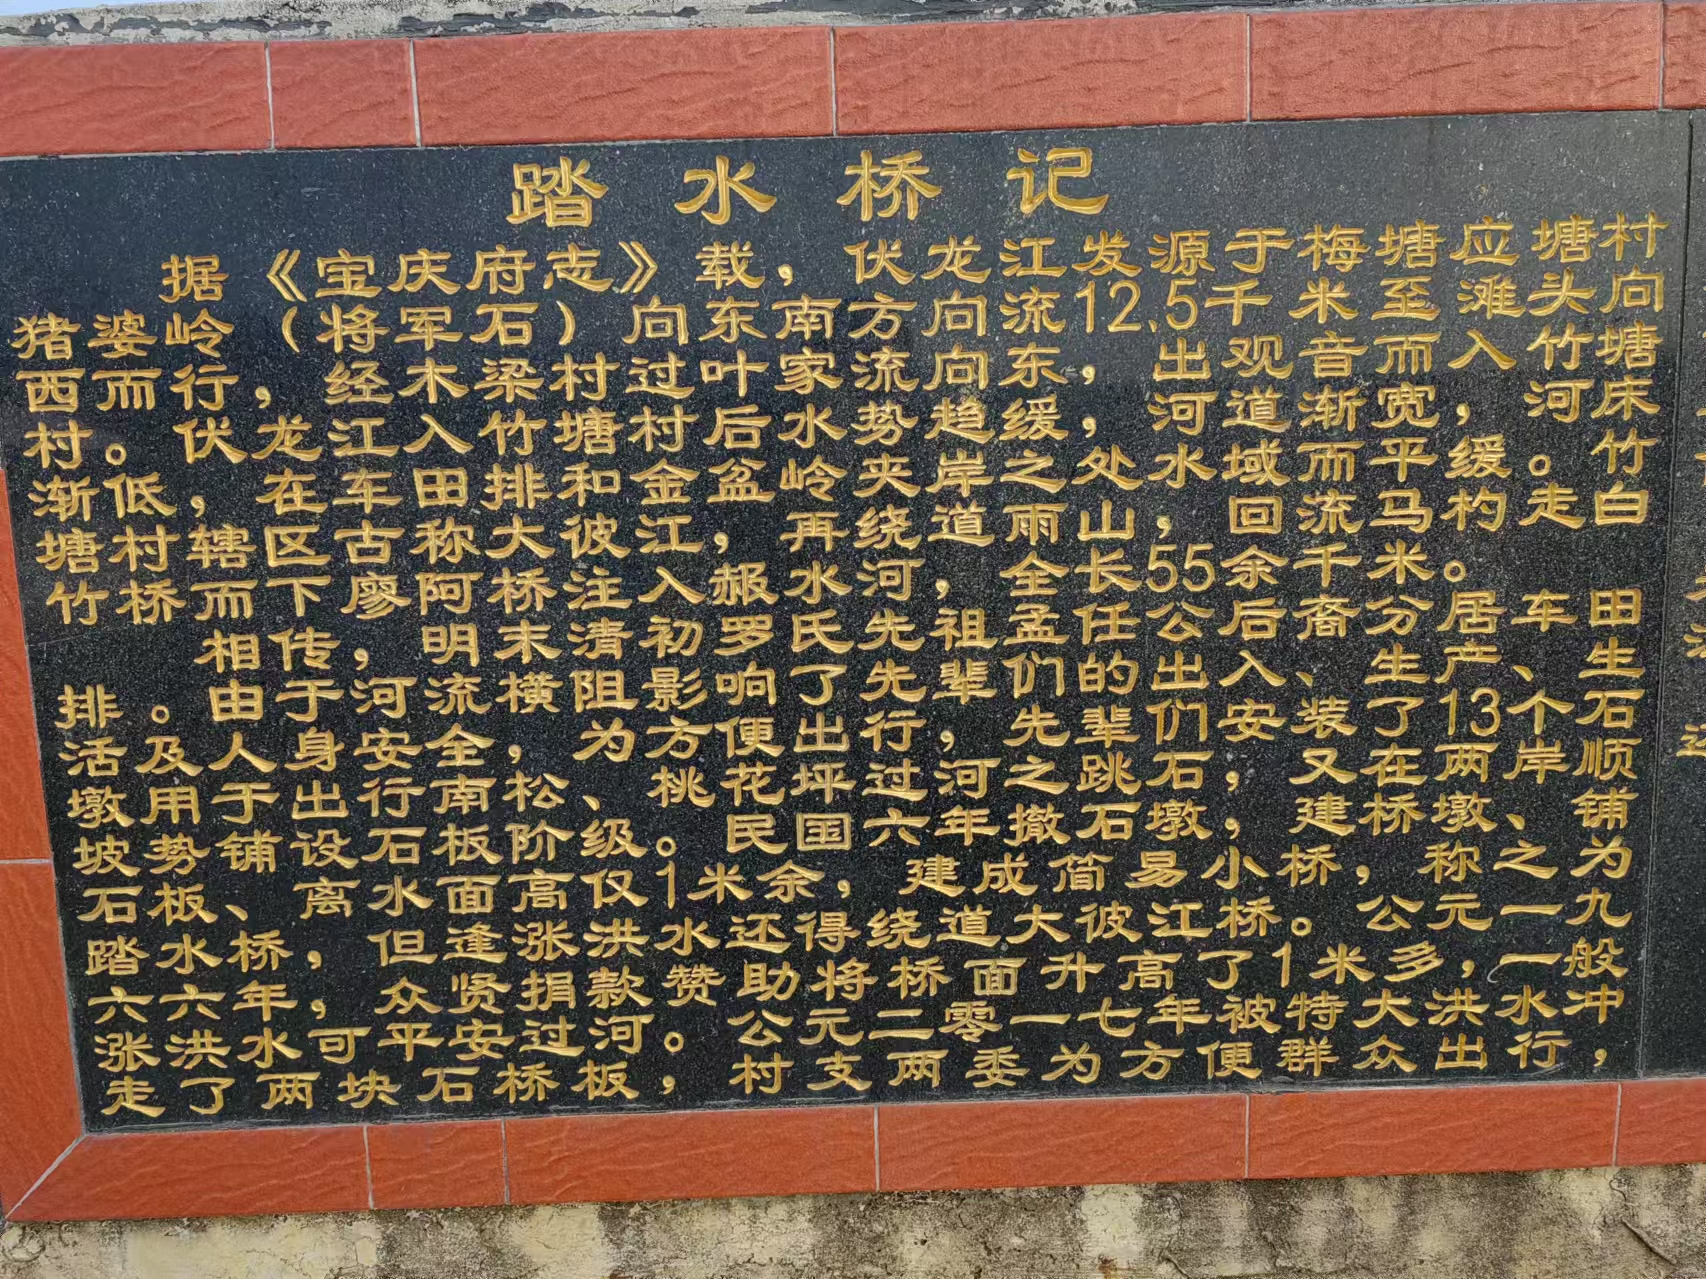 踏水桥记
据《宝庆府志》载，伏龙江发源于梅塘应塘村
猪婆岭（将军石）向东南方向流12.5千米至滩头向
西而行，经木梁村过叶家流向东，出观音而入竹塘
村。伏龙江入竹塘村后水势趋缓，河道渐宽，河床
渐低，在车田排和金盆岭夹岸之处水域而平缓。竹
塘村辖区古称大彼江，再绕道雨山，回流马杓走白
竹桥而下廖阿桥注入赧水河，全长55余千米。
相传，明末清初罗氏先祖孟任公后裔分居车田
排。由于河流横阻影响了先辈们的出入、生产、生
活及人身安全，为方便出行，先辈们安装了13个石
墩用于出行南松、桃花坪过河之跳石，又在两岸顺
坡势铺设石板阶级。民国六年撤石墩，建桥墩、铺
石板、离水面高仅1米余，建成简易小桥，称之为
踏水桥，但逢涨洪水还得绕道大彼江桥。公元一九
六六年，众贤捐款赞助将桥面升高了1米多，一般
涨洪水可平安过河。公元二零一七年被特大洪水冲
走了两块石桥板，村支两委为方便群众出行，